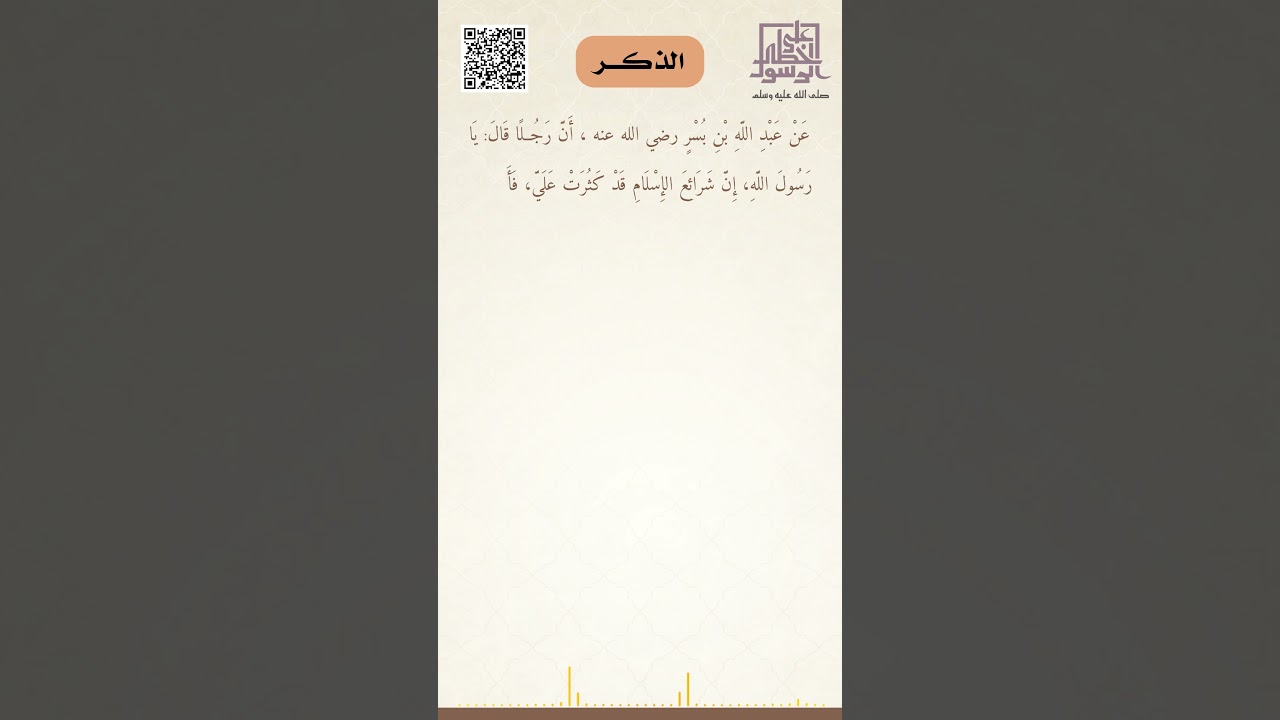 الذكر
على خطى الرسول
صلى الله عليه وسلم
عَنْ عَبْدِ اللَّهِ بْنِ بُسْرٍ رضي الله عنه ، أَنَّ رَجُـلًا قَالَ: يَا
رَسُولَ اللَّهِ، إِنَّ شَرَائِعَ الإِسْلَامِ قَدْ كَثُرَتْ عَلَيَّ، فَأَ